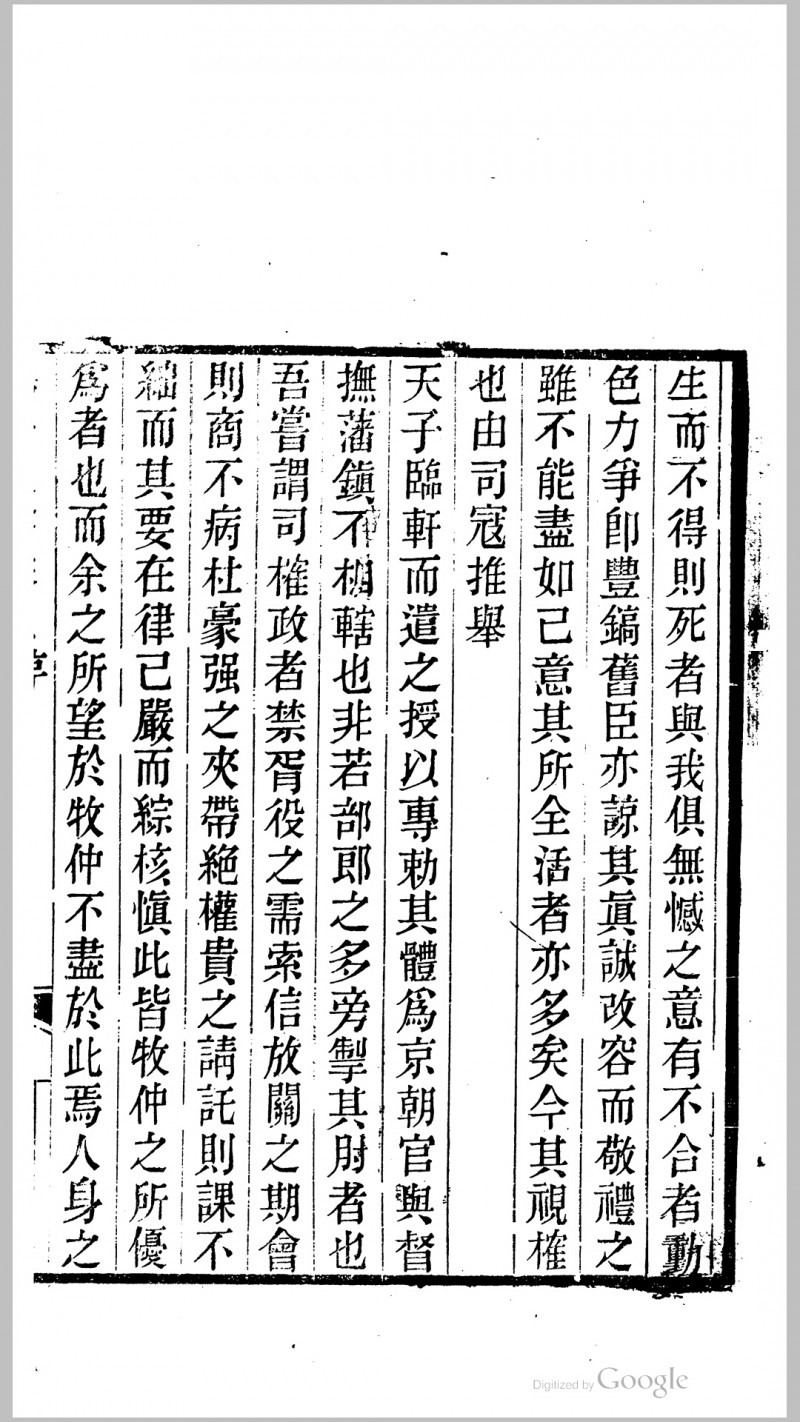 生而不得則死者與我俱無憾之意有不合者動
色力爭卽豐鎬舊臣亦諒其眞誠改容而敬禮之
雖不能盡如己意其所全活者亦多矣今其視榷
也由司寇推舉
天子臨軒而遣之授以專勅其體爲京朝官與督
撫藩鎮不相轄也非若部郎之多旁掣其肘者也
吾嘗謂司榷政者禁胥役之需索信放關之期會
則商不病杜豪强之夾帶絶權貴之請託則課不
絀而其要在律己嚴而綜核愼此皆牧仲之所優
爲者也而余之所望於牧仲不盡於此焉人身之
Digitized by Google